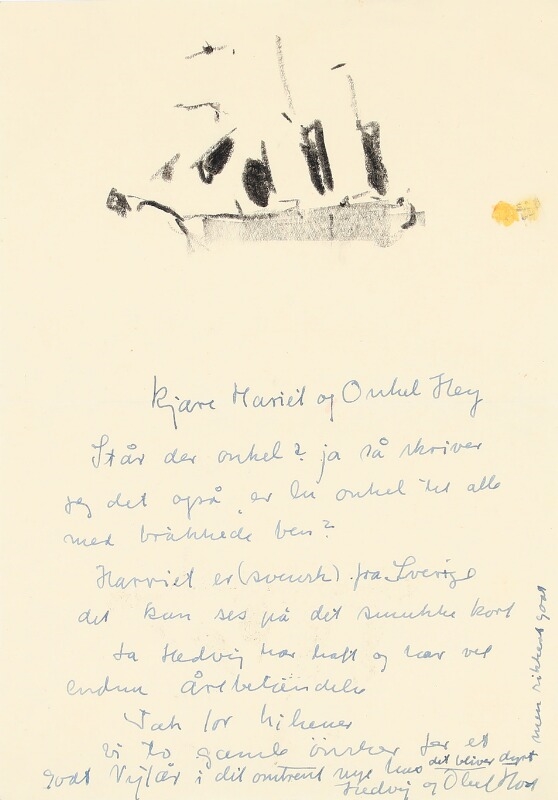 Kjære Mariet og Onkel Hey
Står der onkel? ja så skriver
jeg det også, er du onkel til alle
med brækkede ben?
Harriet er (svensk) fra Sverige
det kan ses på det smukke kort
Ja Hedvig har haft og har vel
endnu Årebetændelse
Tak for hilsener
vi to gamle ønsker jer et
godt Nytår i dit omtrent nye hus det bliver dyrt
men sikkert godt
Hedvig og